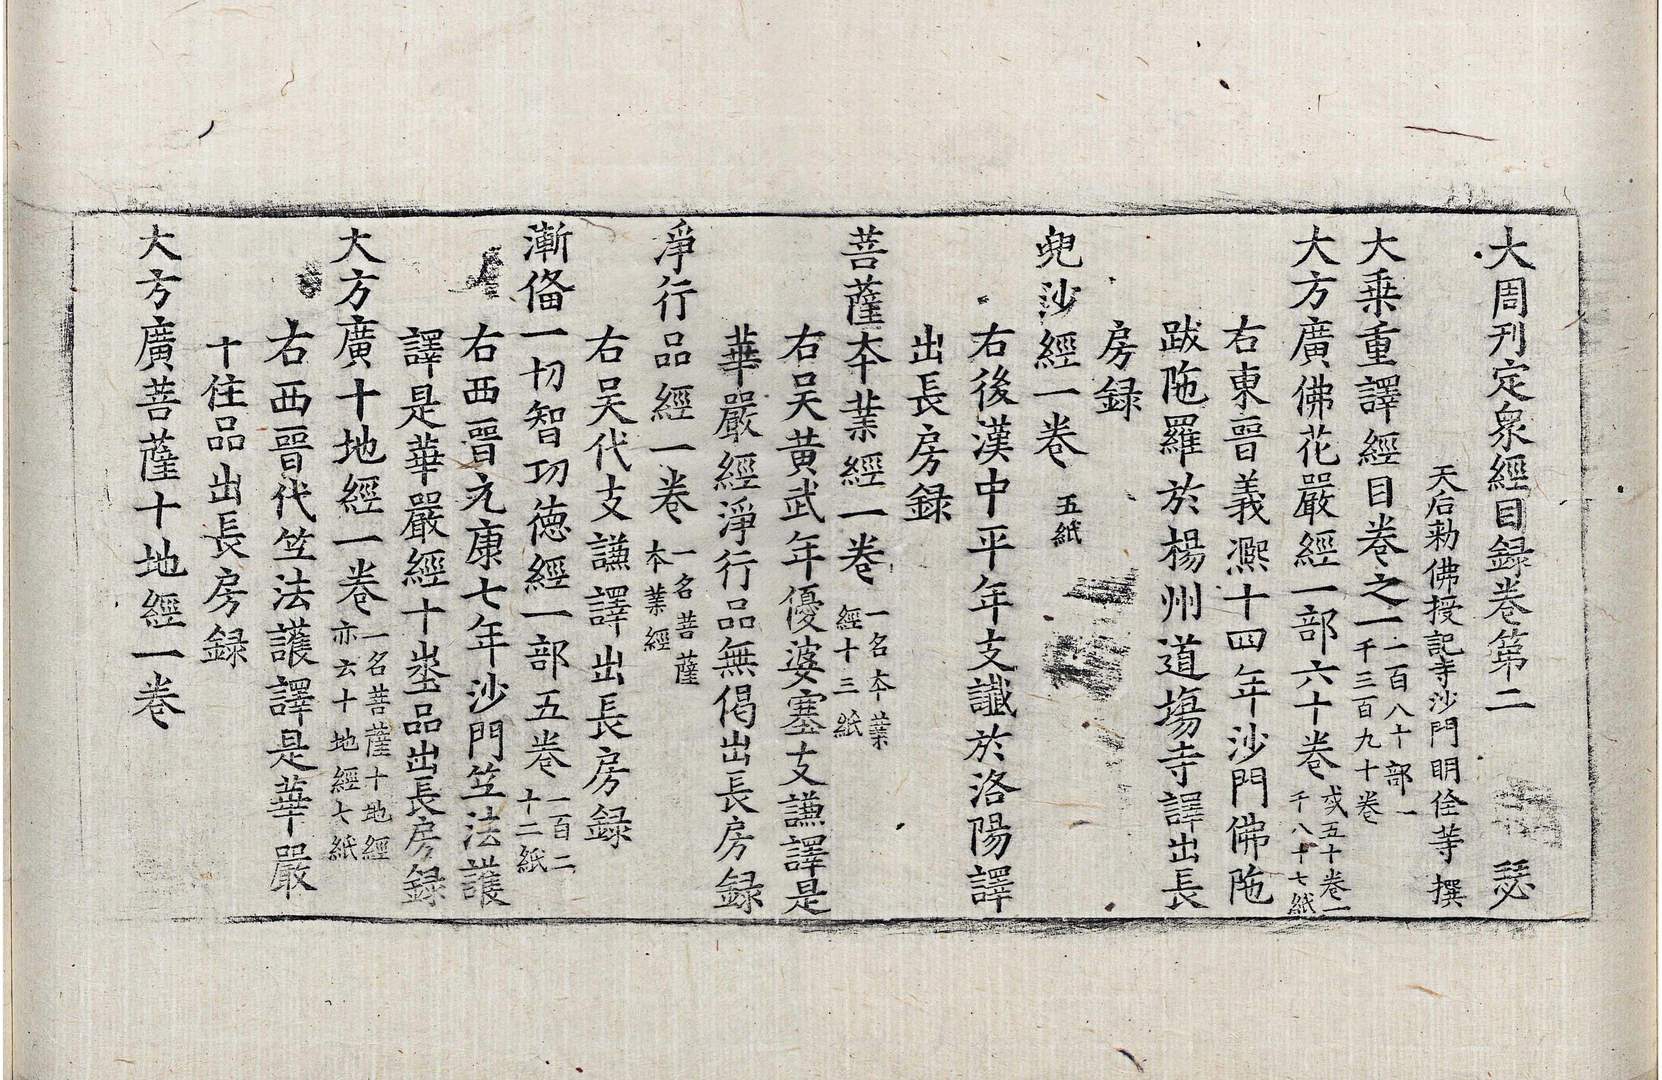 大周刊定衆經目録卷第二 瑟
天后勑佛授記寺沙門明佺䓁撰
大乗重譯經目卷之一 一百八十部一千三百九十卷
大方廣佛花嚴經一部六十卷 或五十卷一千八十七紙
右東晉義熈十四年沙門佛陁
跋陁羅於楊州道場寺譯出長
房録
兜沙經一卷 五紙
右後漢中平年支讖於洛陽譯
出長房録
菩薩夲業經一卷 一名夲業經十三紙
右吴黄武年優婆塞支謙譯是
華嚴經淨行品無偈出長房録
淨行品經一卷 一名菩薩本業經
右吴代支謙譯出長房録
漸俻一切智功徳經一部五卷 一百二十二紙
右西晉元康七年沙門竺法護
譯是華嚴經十地品出長房録
大方廣十地經一卷 一名菩薩十地經亦云十地經七紙
右西晉代竺法護譯是華嚴
十住品出長房録
大方廣菩薩十地經一卷